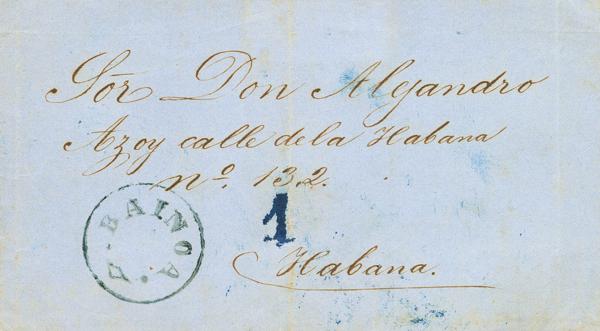 Sōr Don Alejandro
Azoy calle de la Habana
nº. 132.
BAINOA.
1
Habana.